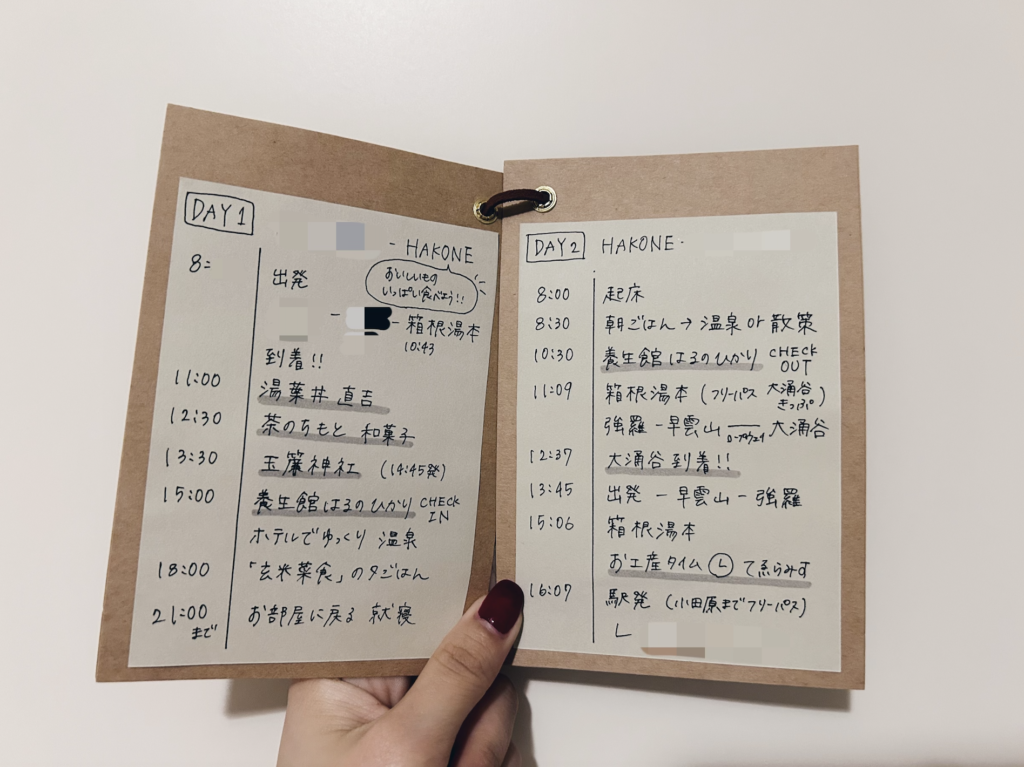 DAY1
- HAKONE
おいしいもの
いっぱい食べよう!!
8:
出発
- - 箱根湯本
10:43
到着!!
11:00 湯葉丼 直吉
12:30 茶のちもと 和菓子
13:30 玉簾神社 (14:45発)
15:00 養生館はるのひかり CHECK IN
ホテルでゆっくり 温泉
18:00 「玄米菜食」の夕ごはん
21:00 まで お部屋に戻る 就寝
DAY2 HAKONE -
8:00 起床
8:30 朝ごはん→温泉or散策
10:30 養生館はるのひかり CHECK OUT
11:09 箱根湯本 (フリーパス 大涌谷きっぷ)
強羅-早雲山 ロープウェイ 大涌谷
12:37 大涌谷到着!!
13:45 出発-早雲山-強羅
15:06 箱根湯本
お土産タイム Ⓛ てゑらみす
16:07 駅発 (小田原までフリーパス)